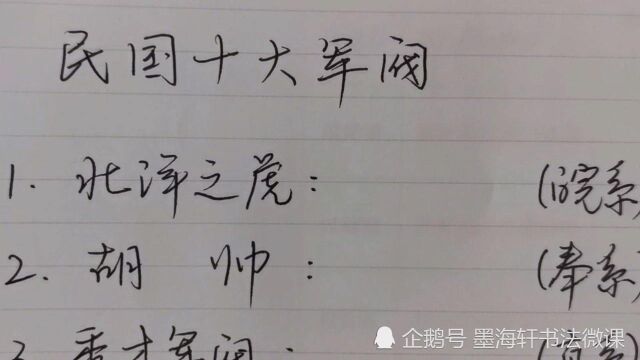 民国十大军阀
1. 北洋之虎: (皖系)
2. 胡 帅: (奉系)
3. 秀才军阀: (直系)
企鹅号 墨海轩书法微课